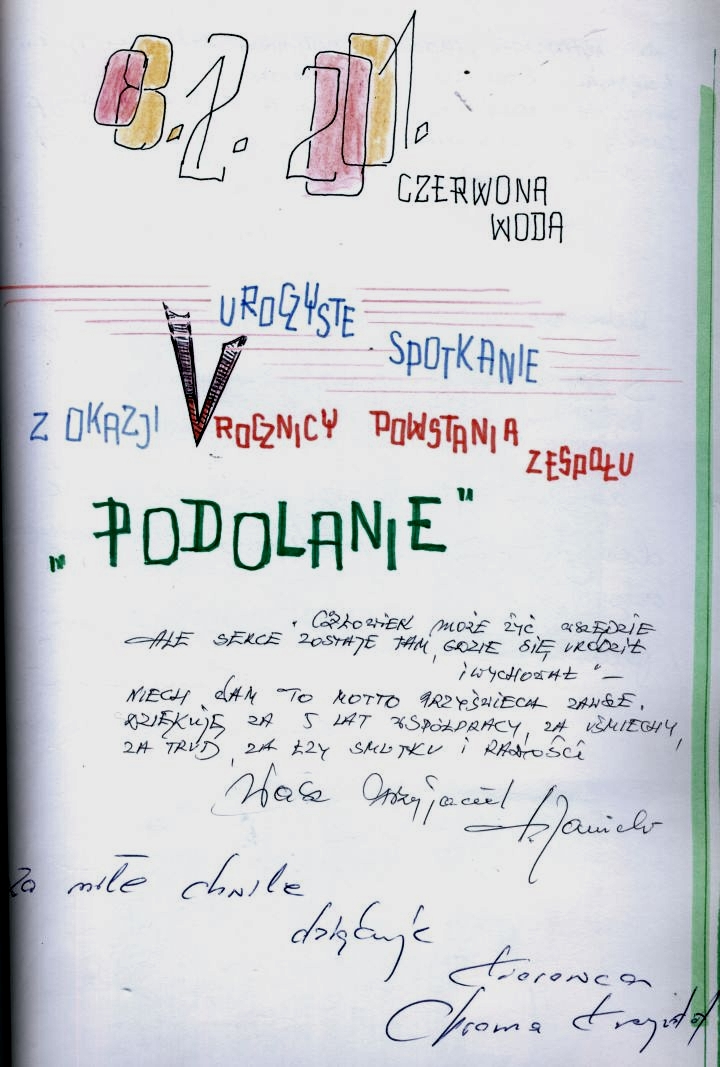 8.2.2001.
CZERWONA
WODA
UROCZYSTE
SPOTKANIE
Z OKAZJI V ROCZNICY POWSTANIA
ZESPOŁU
„PODOLANIE"
CZŁOWIEK MOŻE ŻYĆ WSZĘDZIE
ALE SERCE ZOSTAJE TAM, GDZIE SIĘ URODZIŁ
I WYCHOWAŁ" –
NIECH WAM TO MOTTO PRZYŚWIECA ZAWSZE.
DZIĘKUJĘ ZA 5 LAT WSPÓŁPRACY, ZA UŚMIECHY,
ZA TRUD, ZA ŁZY SMUTKU I RADOŚCI
Wasz Przyjaciel
Za miłe chwile
dziękuję
kierowca